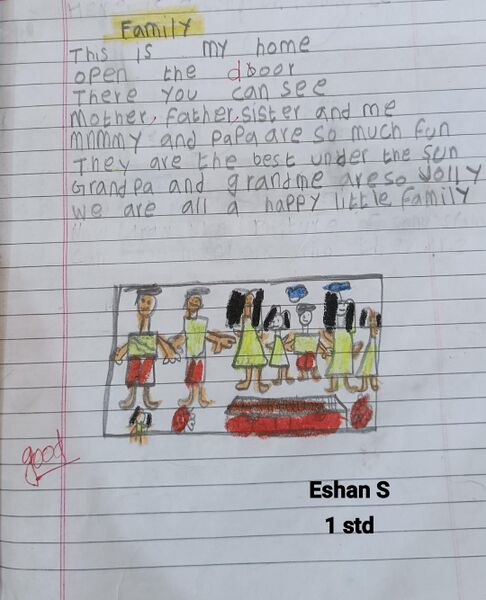 Family
This is my home
open the door
There you can see
Mother, father, sister and me
Mnmmy and papa are so much fun
They are the best under the sun
Grandpa and grandme are so yolly
we are all a happy little family
good
Eshan S
1 std